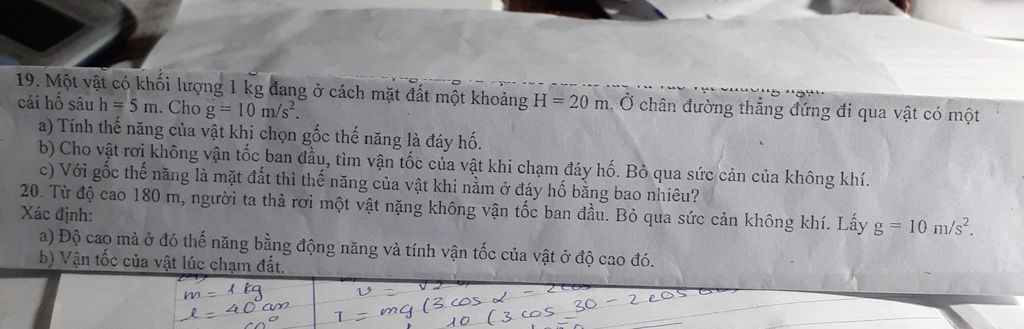 19. Một vật có khối lượng 1 kg đang ở cách mặt đất một khoảng H = 20 m. Ở chân đường thẳng đứng đi qua vật có một
cái hố sâu h = 5 m. Cho g = 10 m/s².
a) Tính thế năng của vật khi chọn gốc thế năng là đáy hố.
b) Cho vật rơi không vận tốc ban đầu, tìm vận tốc của vật khi chạm đáy hố. Bỏ qua sức cản của không khí.
c) Với gốc thế năng là mặt đất thì thế năng của vật khi nằm ở đáy hố bằng bao nhiêu?
20. Từ độ cao 180 m, người ta thả rơi một vật nặng không vận tốc ban đầu. Bỏ qua sức cản không khí. Lấy g = 10 m/s².
Xác định:
a) Độ cao mà ở đó thế năng bằng động năng và tính vận tốc của vật ở độ cao đó.
b) Vận tốc của vật lúc chạm đất.
m = 1 kg
l = 40 cm
T = mg (3 cos α - 2 cos
10 (3 cos 30 - 2 cos